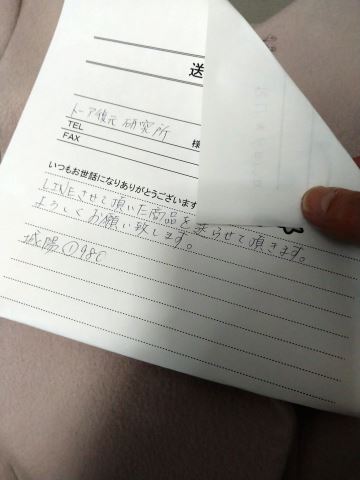 送
トーア復元研究所 様
TEL
FAX
いつもお世話になりありがとうございます
LINEさせて頂いた商品を送らせて頂きます。
よろしくお願い致します。
城陽①98C